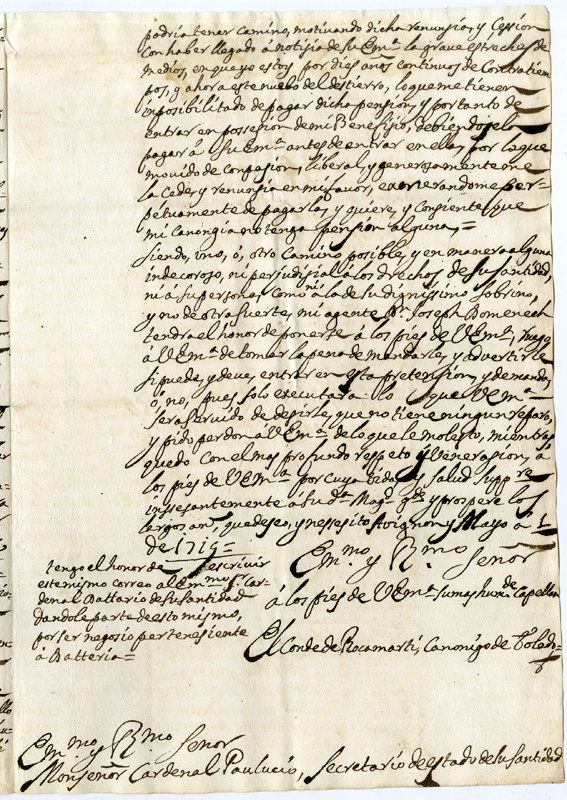 podria tener camino, motivando dicha renunsia, y Cession
Con haber llegado à notisia de su Em.ª la grave estreches de
medios, en que yo estoy por dies años continuos de Contratiem
pos, y ahora este nuebo del destierro, lo que me tiene
imposibilitado de pagar dicha pension, y por tanto de
entrar en possesion de mi Benefisio, debiendosela
pagar à Su Em.ª antes de entrar en ella, por la que
movido de Conpasion, liberal, y generosamente me
la Cede, y renunsia en mi favor, exonerandome per-
petuamente de pagarla, y quiere, y Consiente, que
mi Canongia no tenga pension alguna,=
Siendo, uno, ò, otro Camino posible, y en manera alguna
indecoroso, ni perjudisial à los drechos de su Santidad,
ni à su persona, Como ni à la de su dignissimo Sobrino,
y no de otra suerte, mi agente Dn. Joseph Domenech
tendra el honor de ponerse à los pies de V Em.ª, ruego
à V Em.ª de tomar la pena de mandarle, y advertirle
si puede, y deve, entrar en esta pretension, y demanda,
ò, no, pues solo executarà lo que V Em.ª
sera servido de desirle, que no tiene ningun reparo,
y pido perdon à V Em.ª de lo que le molesto, mientras
quedo Con el mas profundo respeto y Venerasion, à
los pies de V Em.ª por cuya vida, y salud supp.re
insesantemente à Su d.ª Mag.d g.de y prospere los
largos an.s que deseo, y nessesito Avignon y Mayo à 1
de 1715=
Em.mo y R.mo Señor
tengo el honor de escrivir
este mismo correo al Em.mo S.r Car-
denal Battario de su Santidad
dandole parte de esto mismo,
por ser negosio pertenesiente
à Batteria=
à los pies de V Em.ª su mas hum.de Capellan
El Conde de Rocamarti, Canonigo de Toledo=
Em.mo y R.mo Señor
Monseñor Cardenal Paulucio, Secretario de estado de su Santidad